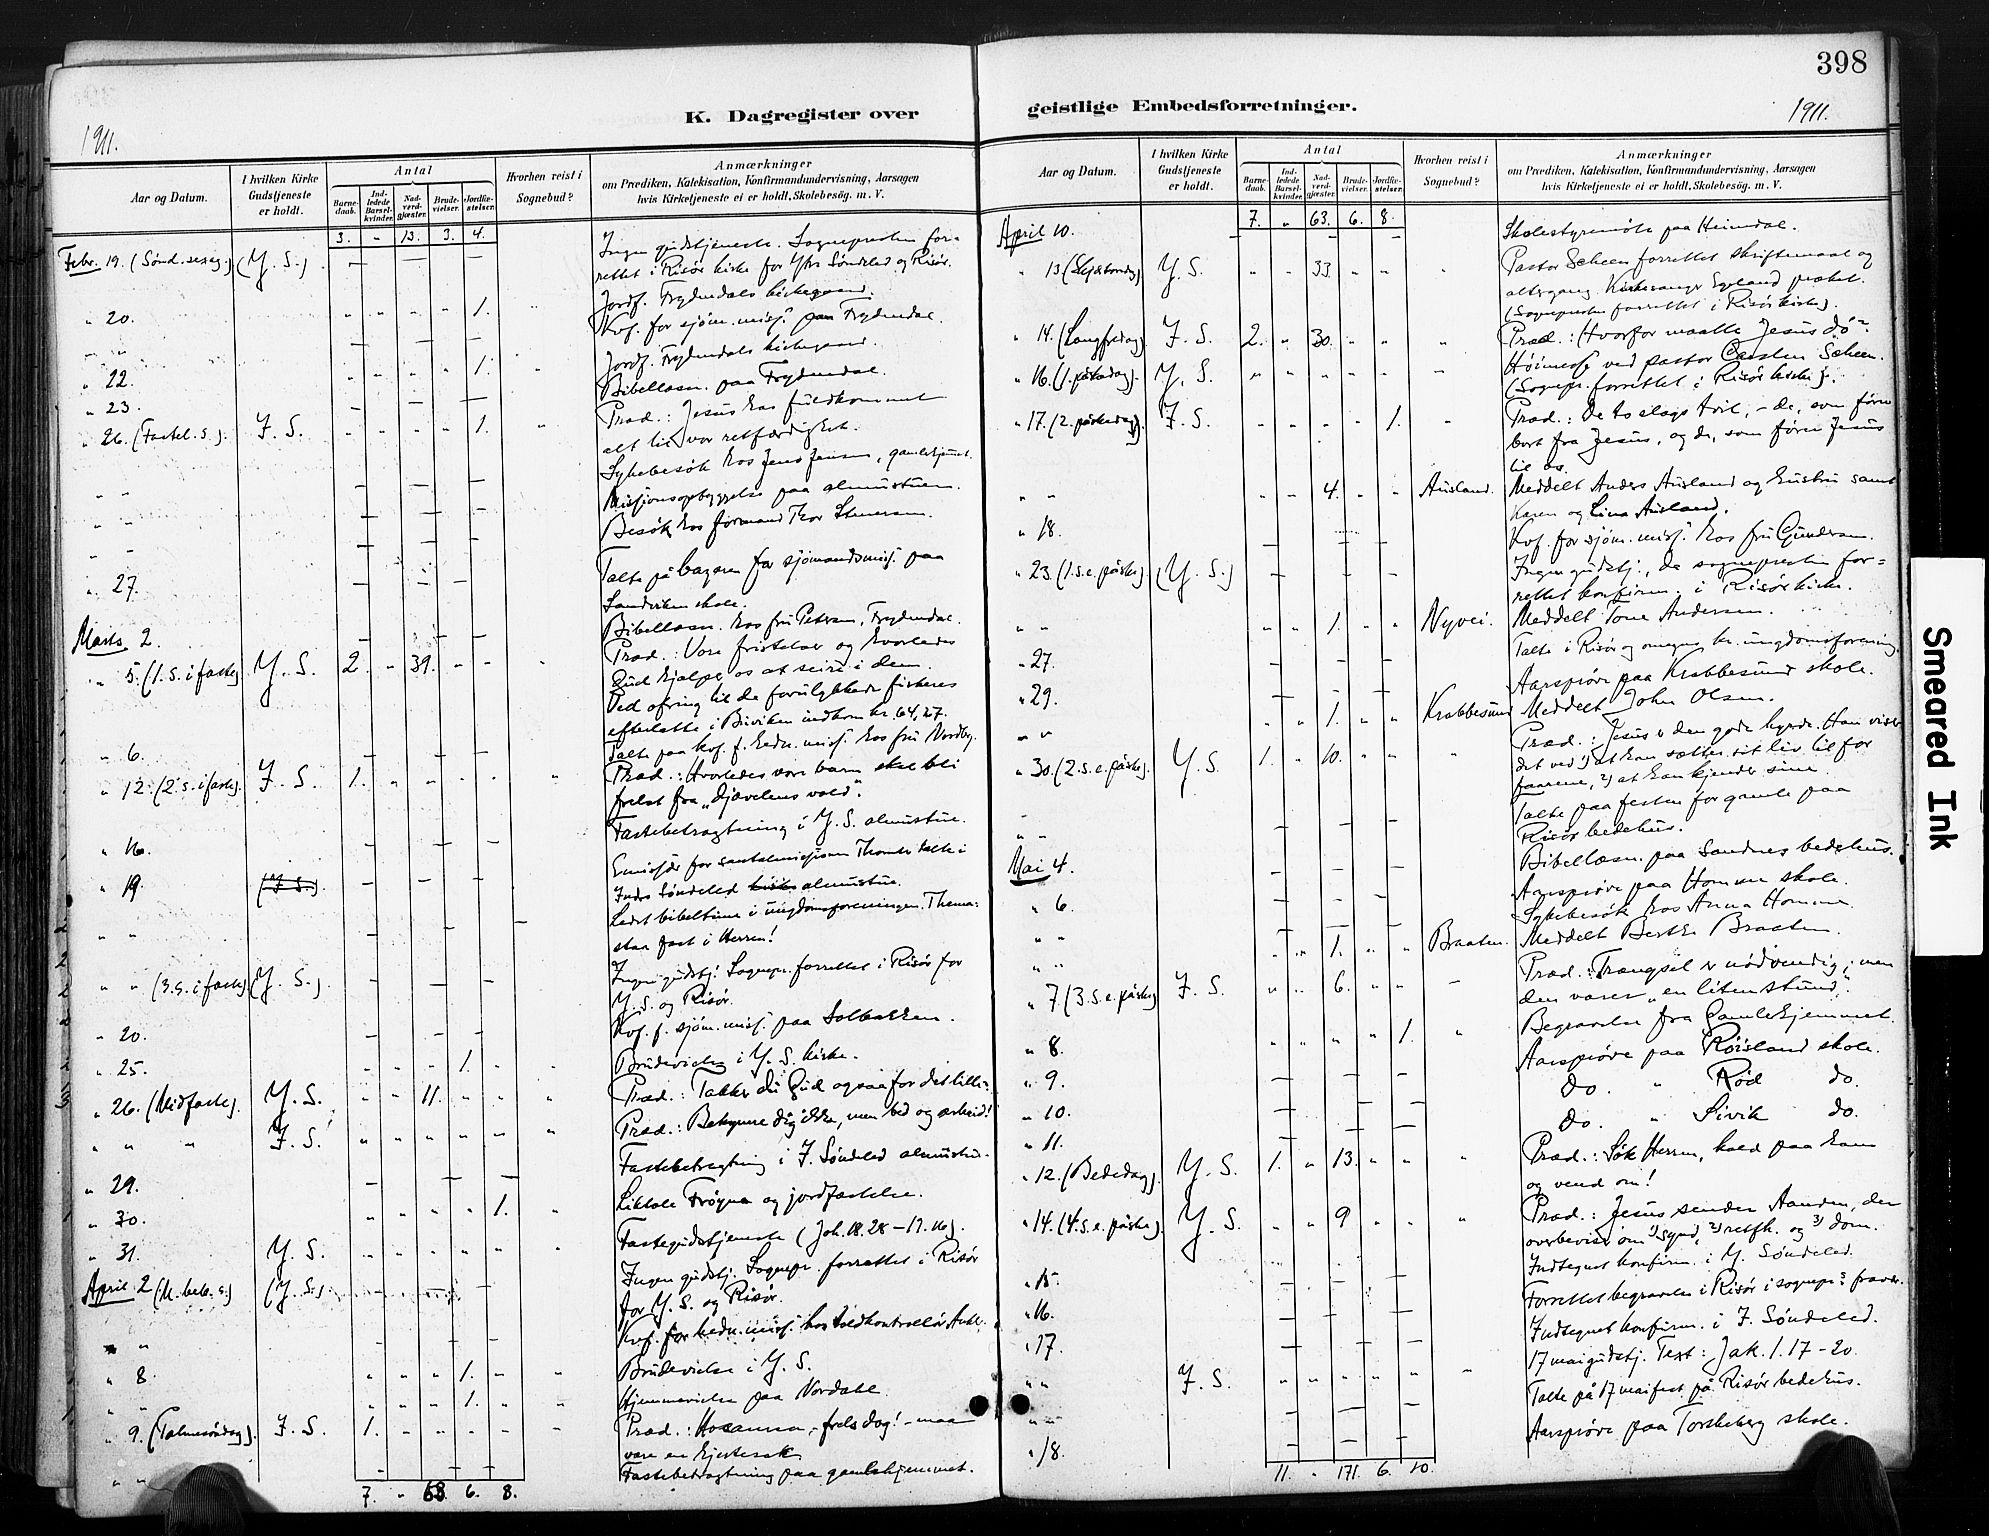 398
K. Dagregister over
geistlige Embedsforretninger.
1911.
1911.
Aar og Datum.
I hvilken Kirke Gudstjeneste er holdt.
Antal
Barnedaab.
Indledede Barselkvinder.
Nadverdgjæster.
Brudevielser.
Jordfæstelser.
Hvorhen reist i Sognebud?
Anmærkninger
om Prædiken, Katekisation, Konfirmandundervisning, Aarsagen
hvis Kirketjeneste ei er holdt, Skolebesøg. m. V.
3. " 13. 3. 4.
Febr. 19. (Sønd. sexag.) (Y. S.) Ingen gudstjeneste. Sognepresten for=
rettet i Risør kirke for Ytre Søndeled og Risør.
" 20. 1. Jordf. Frydendals kirkegaard.
" " Kvf. for sjøm. misj. paa Frydendal.
" 22. 1. Jordf. Frydendals kirkegaard.
" 23. Bibellæsn. paa Frydendal.
" 26. (Fastel. s.). I. S. 1. Præd.: Jesus har fuldkommet
alt til vor retfærdighet.
" " Sykebesøk hos Jens Jensen, gamlehjemmet.
" " Missionsopbyggelse paa almustuen.
" " Besøk hos formand Thor Stenersen.
" 27. Talte på basaren for sjømandsmisj. paa
Sandviken skole.
Marts 2. Bibellæsn. hos fru Petersen, Frydendal.
" 5. (1. s. i faste) Y. S. 2. " 39. Præd.: Vore fristelser og hvorledes
Gud hjælper os at seire i dem.
Ved ofring til de forulykkede fiskeres
efterlatte i Biviken indkom kr. 64,27.
" 6. Talte paa kvf. f. hedn. misj. hos fru Nordby.
" 12. (2. s. i faste). I. S. 1. Præd.: Hvorledes vore barn skal bli
frelst fra "djævelens vold".
" 16. Fastebetragtning i Y. S. almustue.
" 19. (I. S.) Emissær for santalmissionen Thomter talte i
Indre Søndeled kirke almustue.
" " Ledet bibeltime i ungdomsforeningen. Thema:
staa fast i Herren!
" " (3. s. i faste) (Y. S.). Ingen gudstj. Sognepr. forrettet i Risør for
Y. S. og Risør.
" 20. Kvf. f. sjøm. misj. paa Solbakken.
" 25. 1. Brudevielse i Y. S. kirke.
" 26. (Midfaste). Y. S. 11. Præd.: Takker du Gud ogsaa for det lille?
" " " I. S. Præd.: Bekymre dig ikke, men bed og arbeid!
" 29. Fastebetragtning i I. Søndeled almustue.
" 30. 1. Liktale Frøyna og jordfæstelse.
" 31. Y. S. Fastegudstjeneste (Joh. 18. 28 – 19. 16).
April 2 (M. beb. s.) (Y. S.) Ingen gudstj. Sognepr. forrettet i Risør
for Y. S. og Risør.
" " Kvf. for hedn. misj. hos toldkontrollør
" 8. 1. Brudevielse i Y. S.
" " 1. Hjemmevielse paa Nordahl.
" 9. (Palmesøndag). I. S. 1. Præd.: Hosanna, – frels dog! – maa
være en hjertesak
" " Fastebetragtning paa gamlehjemmet.
7. " 63. 6. 8.
Aar og Datum.
I hvilken Kirke Gudstjeneste er holdt.
Antal
Barnedaab.
Indledede Barselkvinder.
Nadverdgjæster.
Brudevielser.
Jordfæstelser.
Hvorhen reist i Sognebud?
Anmærkninger
om Prædiken, Katekisation, Konfirmandundervisning, Aarsagen
hvis Kirketjeneste ei er holdt, Skolebesøg. m. V.
7. " 63. 6. 8.
April 10. Skolestyremøte paa Heimdal.
" 13. (Skjærtorsdag) Y. S. 33. Pastor Scheen forrettet skriftemaal og
altergang. Kirkesanger Egeland præket.
(Sognepresten forrettet i Risør kirke).
" 14. (Langfredag) I. S. 2. " 30. Præd.: Hvorfor maatte Jesus dø?
" 16. (1. påskedag). Y. S. Høimesse ved pastor Carsten Scheen.
(Sognepr. forrettet i Risør kirke).
" 17. (2. påskedag). I. S. 1. Præd.: De to slags tvil, – de, som fører
bort fra Jesus, og de, som fører Jesus
til os.
" " 4. Ausland. Meddelt Anders Ausland og hustru samt
Karen og Lina Ausland.
" 18. Kvf. for sjøm. misj. hos fru Gundersen.
" 23. (1. s. e. påske) (Y. S.) Ingen gudstj., da sognepresten for=
rettet konfirm. i Risør kirke.
" " 1. Nyvei. Meddelt Tone Andersen.
" 27. Talte i Risør og omegns kr. ungdomsforening.
" 29. Aarsprøve paa Krabbesund skole.
" " 1. Krabbesund Meddelt John Olsen.
" 30. (2. s. e. påske). Y. S. 1. 10. Præd.: Jesus er den gode hyrde. Han viser
det ved 1) at han sætter sit liv til for
faarene, 2) at han kjender sine.
" " Talte paa festen for gamle paa
Risør bedehus.
Mai 4. Bibellæsn. paa Sandnes bedehus.
" 6. Aarsprøve paa Homme skole.
" " Sykebesøk hos Anna Homme.
" " 1. Braaten. Meddelt Berthe Braaten.
" 7. (3. s. e. påske) I. S. 6. Præd.: Trængsel er nødvendig; men
den varer "en liten stund".
" 8. 1. Begravelse fra Gamlehjemmet.
" 9. Aarsprøve paa Røisland skole.
" 10. Do. " Rød do.
" 11. Do. " Sivik do.
" 12. (Bededag). Y. S. 1. " 13. Præd.: Søk Herren, hold paa ham
og vend om!
" 14. (4. s. e. påske). Y. S. 9 Præd.: Jesus sender Aanden, der
overbeviser om 1) synd, 2) retfh. og 3) dom.
" 15. Indtegnet konfirm. i Y. Søndeled.
" 16. Forrettet begravelse i Risør i sognepr.s fravær.
" 17. Indtegnet konfirm. i I. Søndeled.
" " I. S. 17 mai gudstj. Text: Jak. 1. 17–20.
" " Talte på 17 maifest på Risør bedehus.
" 18. Aarsprøve paa Torskeberg skole.
11. " 171. 6. 10.
Smeared Ink